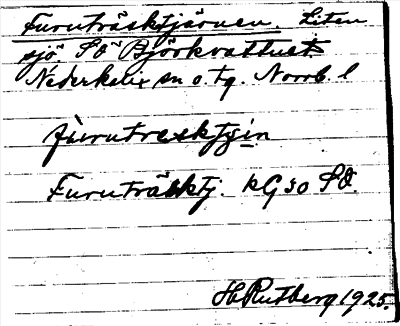 Furuträsktjärnen. Liten
sjö SO Björkvattnet
Nederkalix sn o. tg. Norrb. l
Furuträsktj. kG 30 SO.
H Rutberg 1925.